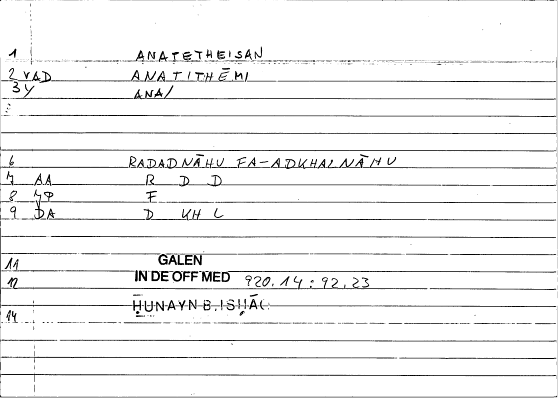 1 ANATETHEISAN
2 VAD ANATITHĒMI
3 Y ANA/
6 RADADNĀHU FA-ADKHALNĀHU
7 AA R D D
8 JP F
9 DA D KH L
11 GALEN
12 IN DE OFF MED 920.14 : 92.23
ḤUNAYN B. ISḤĀ
14